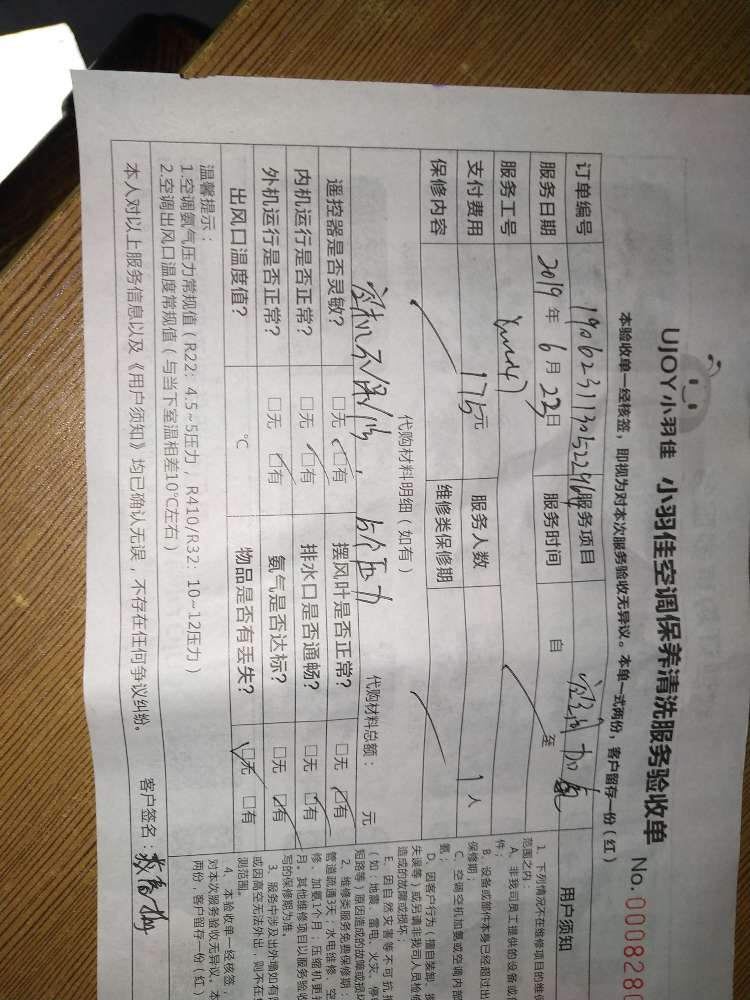 UJOY小羽佳 小羽佳空调保养清洗服务验收单
No.0008280
本验收单一经核签，即视为对本次服务验收无异议。本单一式两份，客户留存一份（红）
订单编号 服务项目 空调加氟
服务日期 2019年6月23日 服务时间 自 至
服务工号 服务人数 1人
支付费用 175元
保修内容 维修类保修期
代购材料明细（如有） 代购材料总额： 元
空机不保修，
遥控器是否灵敏? □无 □有 摆风叶是否正常? □无 □有
内机运行是否正常? □无 □有 排水口是否通畅? □无 □有
外机运行是否正常? □无 □有 氨气是否达标? □无 □有
出风口温度值? ℃ 物品是否有丢失? □无 □有
温馨提示：
1.空调氨气压力常规值（R22：4.5~5压力，R410/R32：10~12压力）
2.空调出风口温度常规值（与当下室温相差10℃左右）
本人对以上服务信息以及《用户须知》均已确认无误，不存在任何争议纠纷。 客户签名：
用户须知
1、下列情况不在维修项目的维保
范围之内：
A、非我司员工提供的设备或
件；
B、设备或部件本身已经超过出
保修期；
C、空调空机加氨或空调内部
氨；
D、因客户行为（擅自装卸、
失误等）或另请非我司人员检修
造成的故障或损坏；
E、因自然灾害等不可抗
（如：地震、雷电、火灾、停
短路等）原因造成的故障或损坏
2、维修类服务免费保修期：
管道疏通3天；水电维修、空
修、加氨1个月；压缩机更
月。其他维修项目以服务验收
写的保修期为准。
3、服务中涉及出外墙如有
或因高空无法外出，则不在
测范围。
4、本验收单一经核签，
对本次服务验收无异议。本
两份，客户留存一份（红）